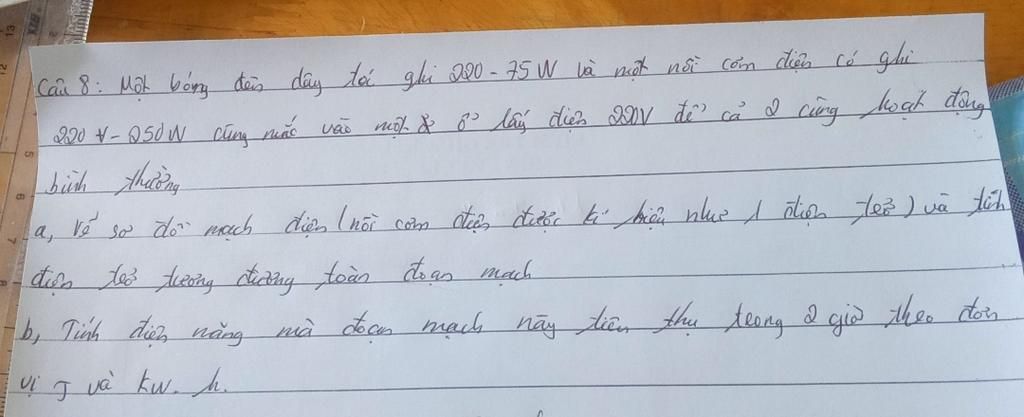 Câu 8: Một bóng đèn dây tóc ghi 220 - 75W và một nồi cơm điện có ghi
220 V - 250W cùng mắc vào một ổ lấy điện 220V để cả 2 cùng hoạt động
bình thường
a, Vẽ sơ đồ mạch điện (nồi cơm điện được kí hiệu như 1 điện trở) và tính
điện trở tương đương toàn đoạn mạch
b, Tính điện năng mà đoạn mạch này tiêu thụ trong 2 giờ theo đơn
vị J và kW. h.